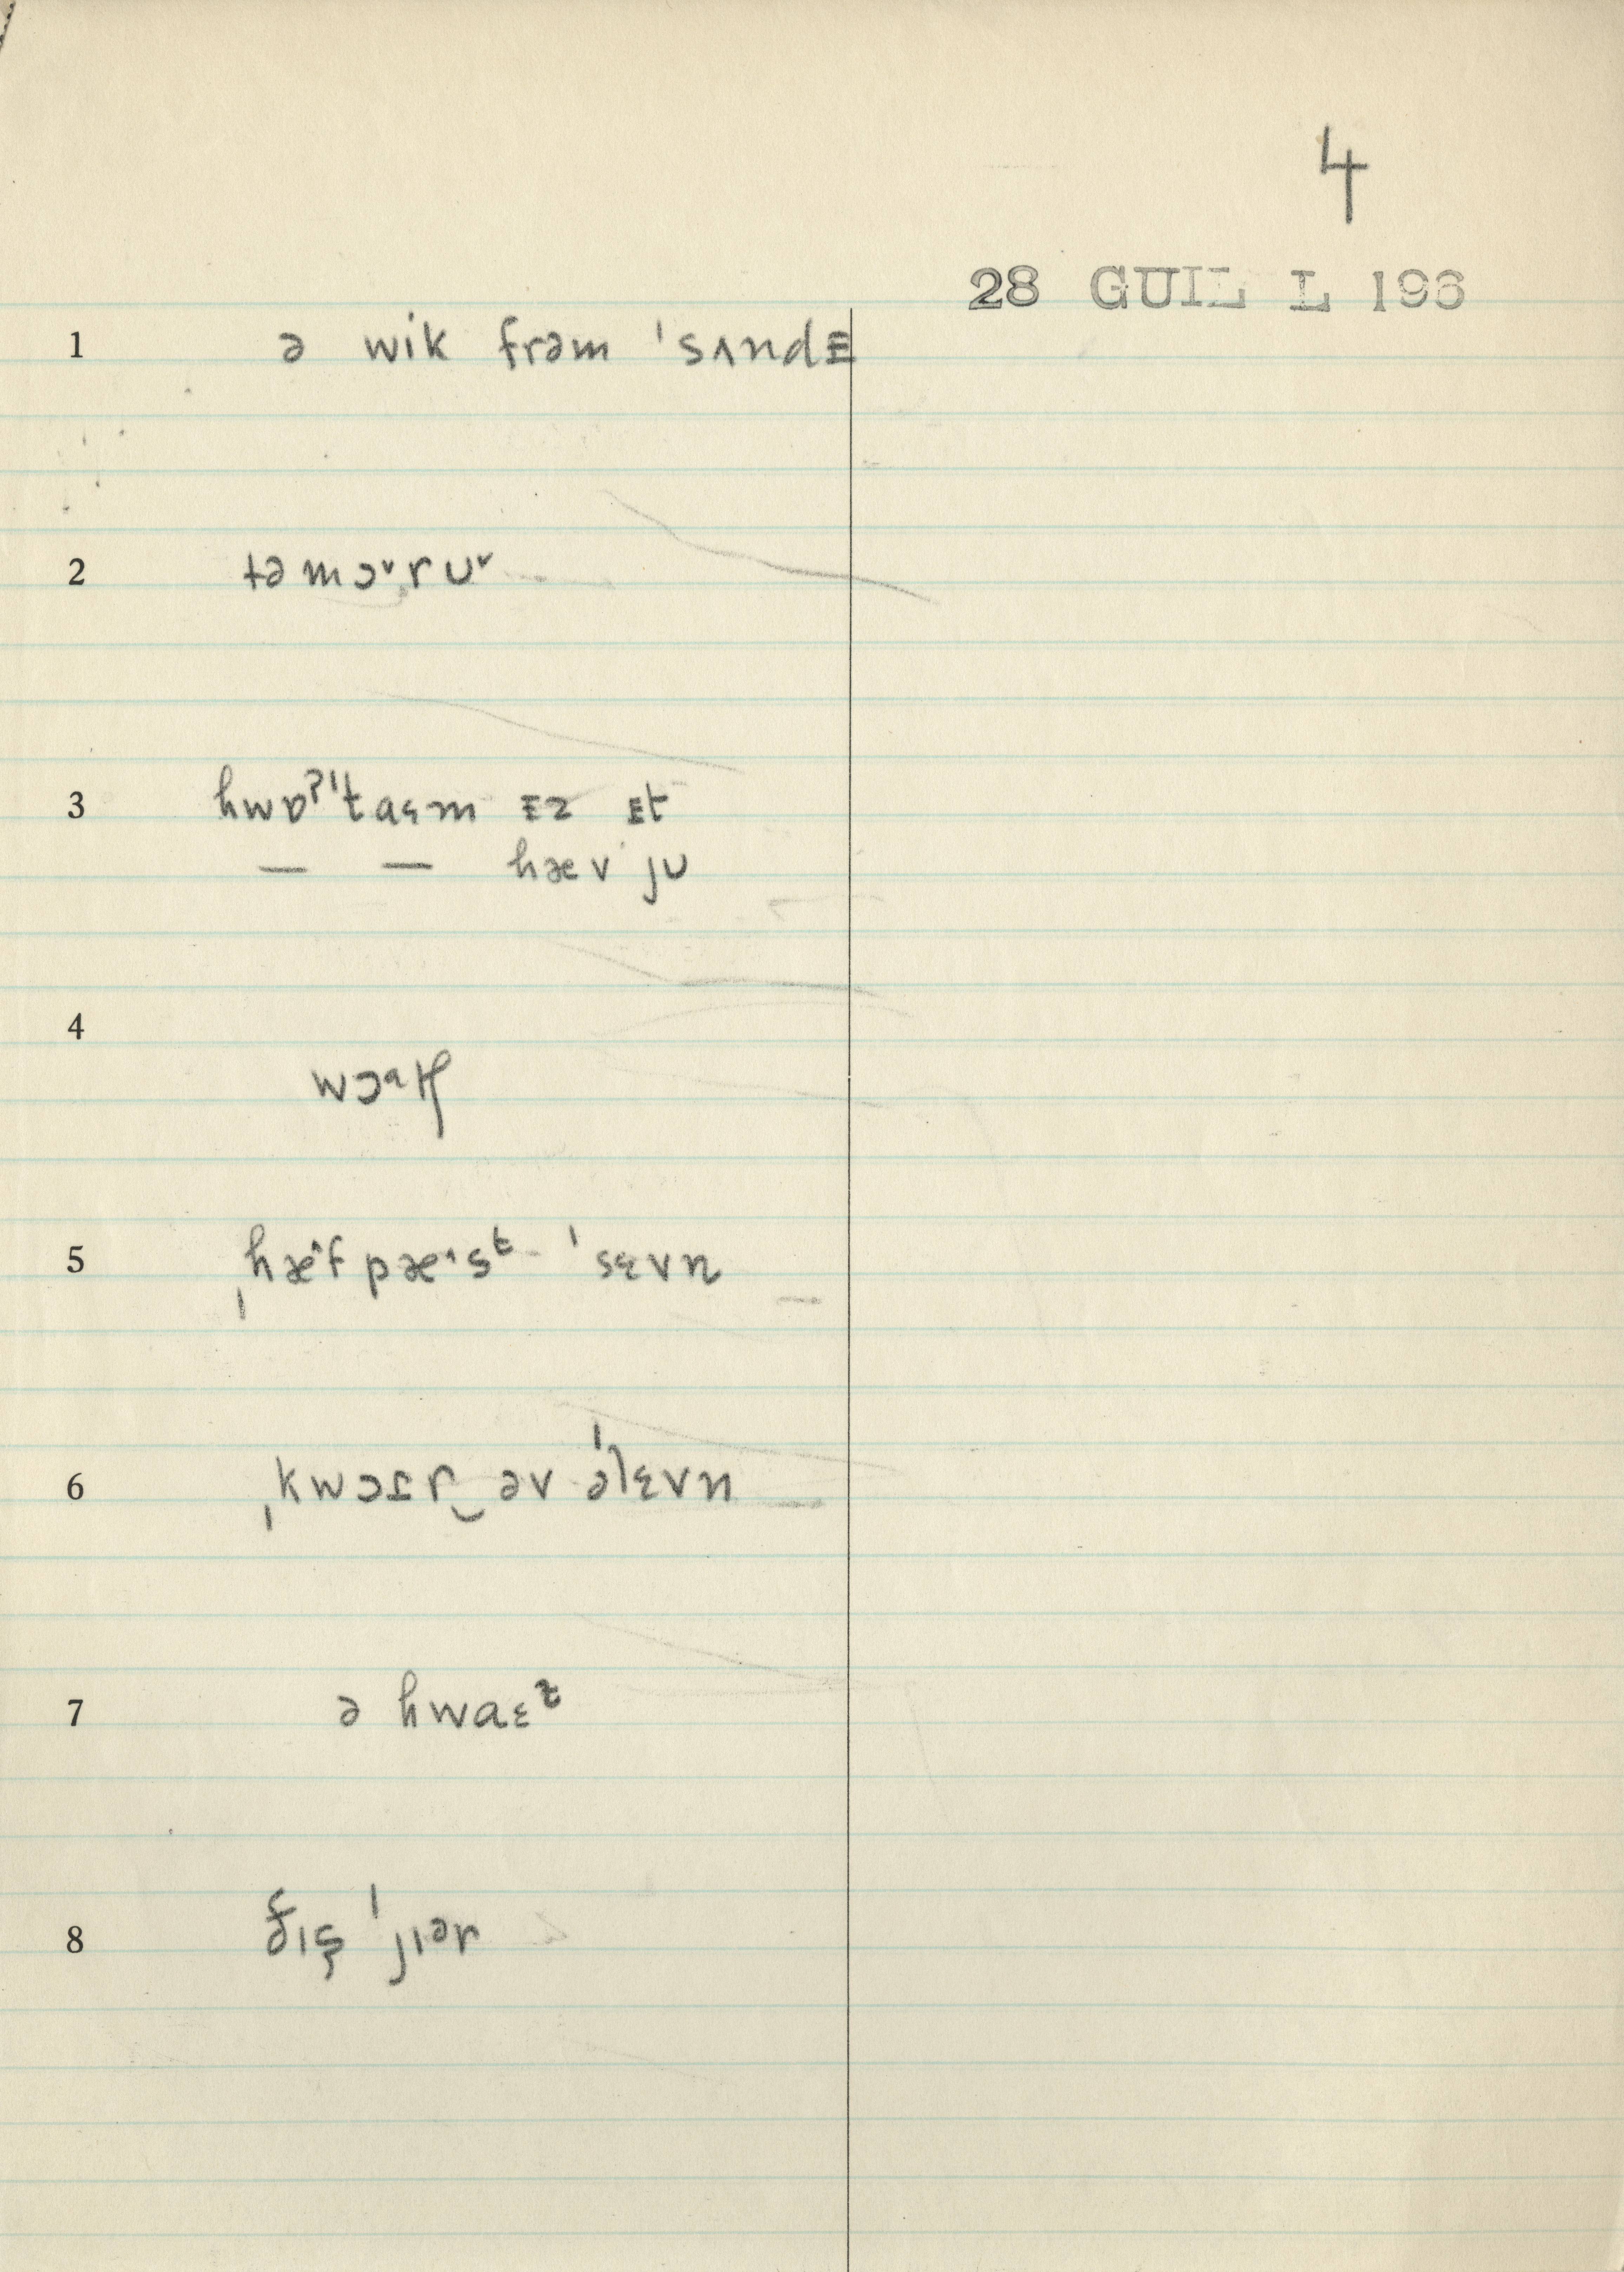 4
28 GUIL L 196
1 ə wik frəm ˈsʌndᴇ
2 təmɔᵛrʊᵛ
3 hwɒˀˈtaɛm ᴇz ᴇt
— — hæv jʊ
4 wɔᵃtʃ
5 ˌhæ˄f pæ˄sᵗ ˈsɛvn
6 ˌkwɔɾr‿əv əˈlɛvn
7 ə hwaɛᵗ
8 ðɪs ˈjɪᵊr